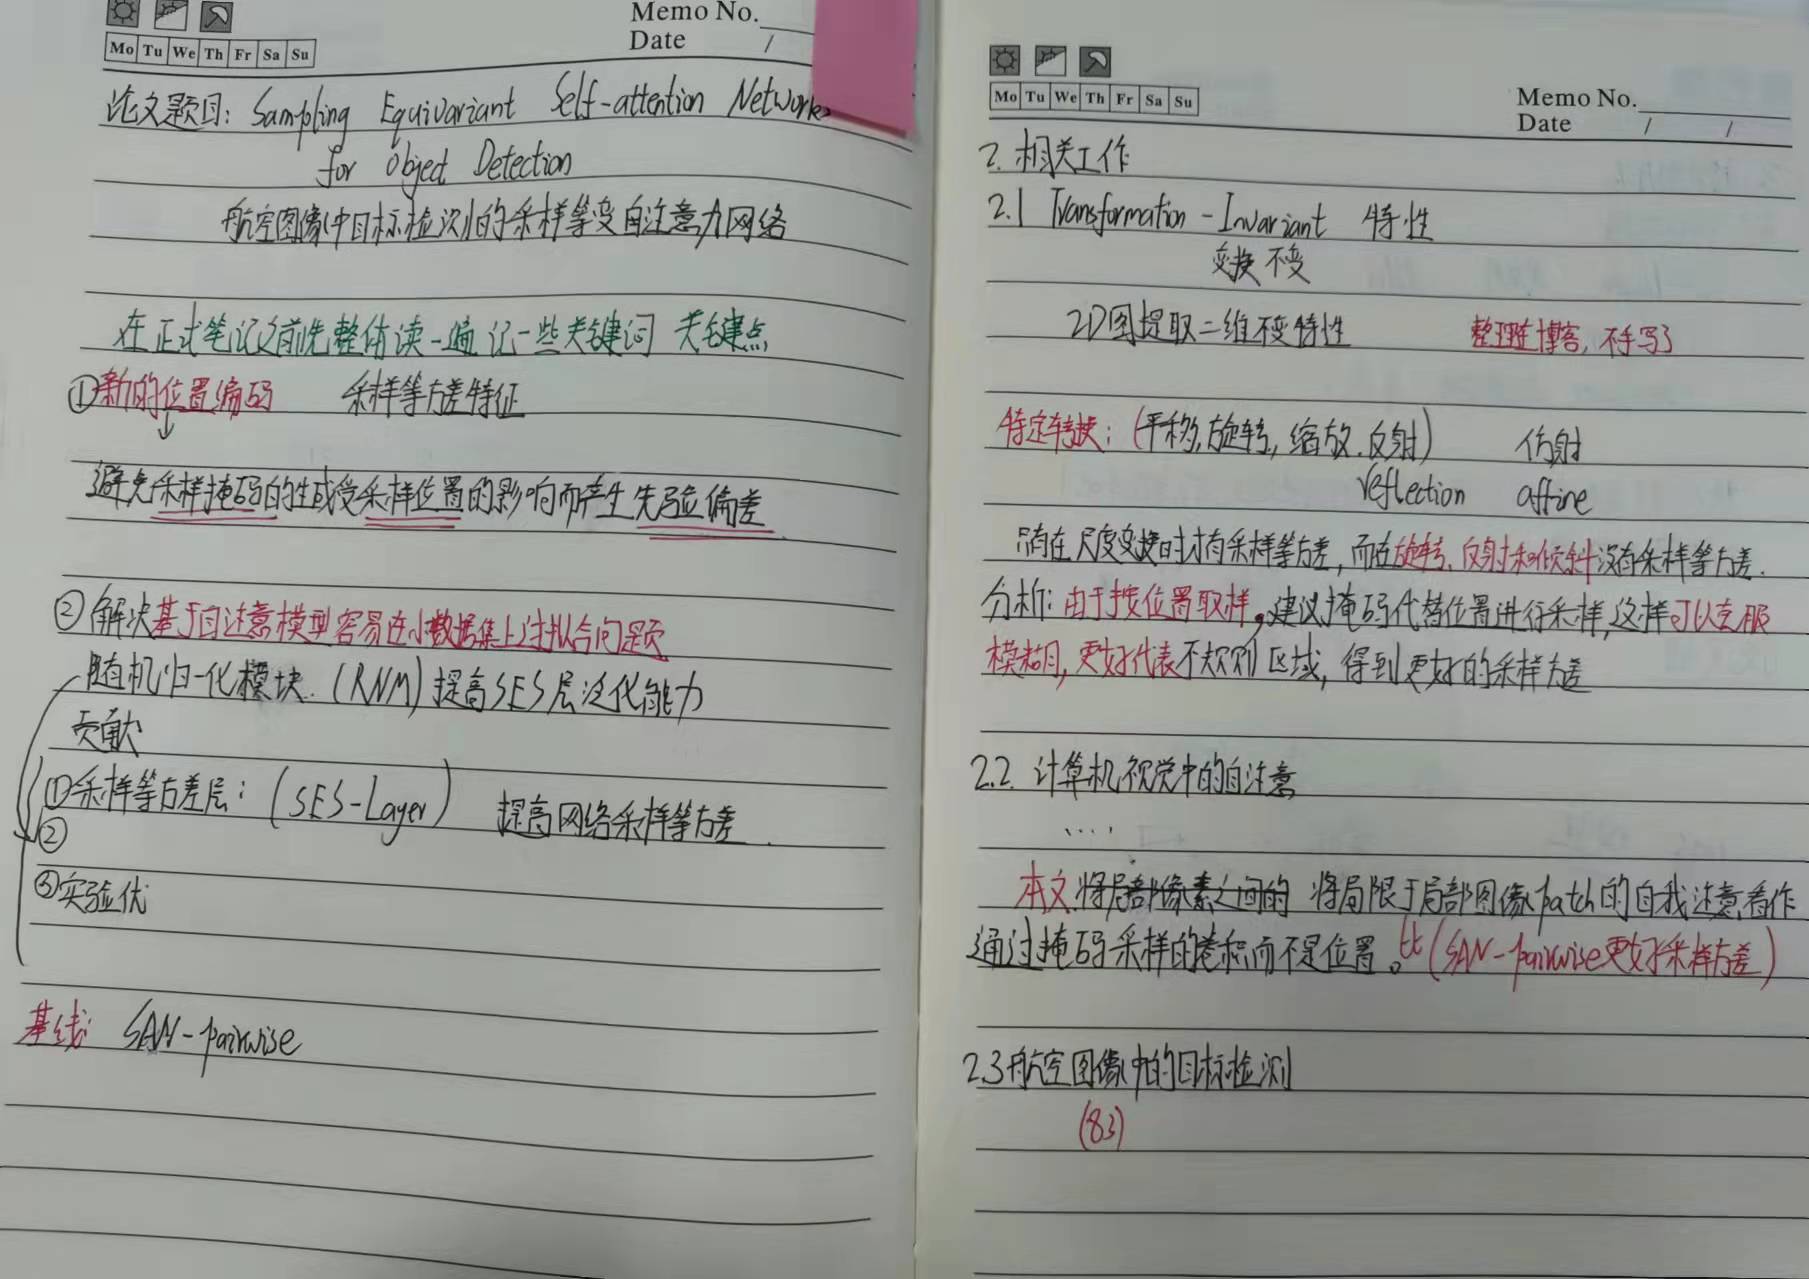 Memo No.
Mo Tu We Th Fr Sa Su
Date /
论文题目: Sampling Equivariant Self-attention Networks
for Object Detection
航空图像中目标检测的采样等变自注意力网络
在正式笔记之前先整体读一遍 记一些关键词 关键点
①新的位置编码 采样等方差特征
↓
避免采样掩码的生成受采样位置的影响而产生先验偏差
②解决基于自注意模型容易在小数据集上过拟合问题
随机归一化模块. (RNM) 提高SES层泛化能力
贡献
①采样等方差层: (SES-Layer) 提高网络采样等方差.
②
③实验优
基线: SAN-pairwise
Mo Tu We Th Fr Sa Su
Memo No.
Date / /
2. 相关工作
2.1 Transformation-Invariant 特性
变换 不变
2D图提取二维不变特性 整理在博客, 不手写了
特定转换: (平移, 旋转, 缩放. 反射) 仿射
reflection affine
只有在尺度变换时才有采样等方差, 而在旋转、反射和倾斜没有采样等方差.
分析: 由于按位置取样。建议掩码代替位置进行采样, 这样可以克服
模糊, 更好代表不规则区域, 得到更好的采样方差
2.2. 计算机视觉中的自注意
....
本文 将局部像素之间的 将局限于局部图像patch的自我注意看作
通过掩码采样的卷积而不是位置。比(SAN-pairwise更好采样方差)
2.3 航空图像中的目标检测
(83)